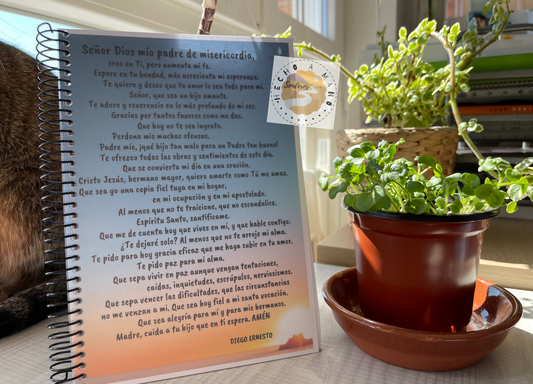 Señor Dios mío padre de misericordia,
creo en Ti, pero aumenta mi fe.
Espero en tu bondad, más acrecienta mi esperanza.
Te quiero y deseo que tu amor lo sea todo para mí.
Señor, que sea un hijo amante.
Te adoro y reverencio en lo más profundo de mi ser.
Gracias por tantos favores como me das.
Que hoy no te sea ingrato.
Perdona mis muchas ofensas.
Padre mío, ¡qué hijo tan malo para un Padre tan bueno!
Te ofrezco todas las obras y sentimientos de este día.
Que se convierta mi día en una oración.
Cristo Jesús, hermano mayor, quiero amarte como Tú me amas.
Que sea yo una copia fiel tuya en mi hogar,
en mi ocupación y en mi apostolado.
Al menos que no te traicione, que no escandalice.
Espíritu Santo, santifícame.
Que me de cuenta hoy que vives en mí, y que hable contigo.
¿Te dejaré solo? Al menos que no te arroje mi alma.
Te pido para hoy gracia eficaz que me haga subir en tu amor.
Te pido paz para mi alma.
Que sepa vivir en paz aunque vengan tentaciones,
caídas, inquietudes, escrúpulos, nerviosismos.
Que sepa vencer las dificultades, que las circunstancias
no me venzan a mí. Que sea hoy fiel a mi santa vocación.
Que sea alegría para mí y para mis hermanos.
Madre, cuida a tu hijo que en ti espera. AMÉN
DIEGO ERNESTO
HECHO A MANO